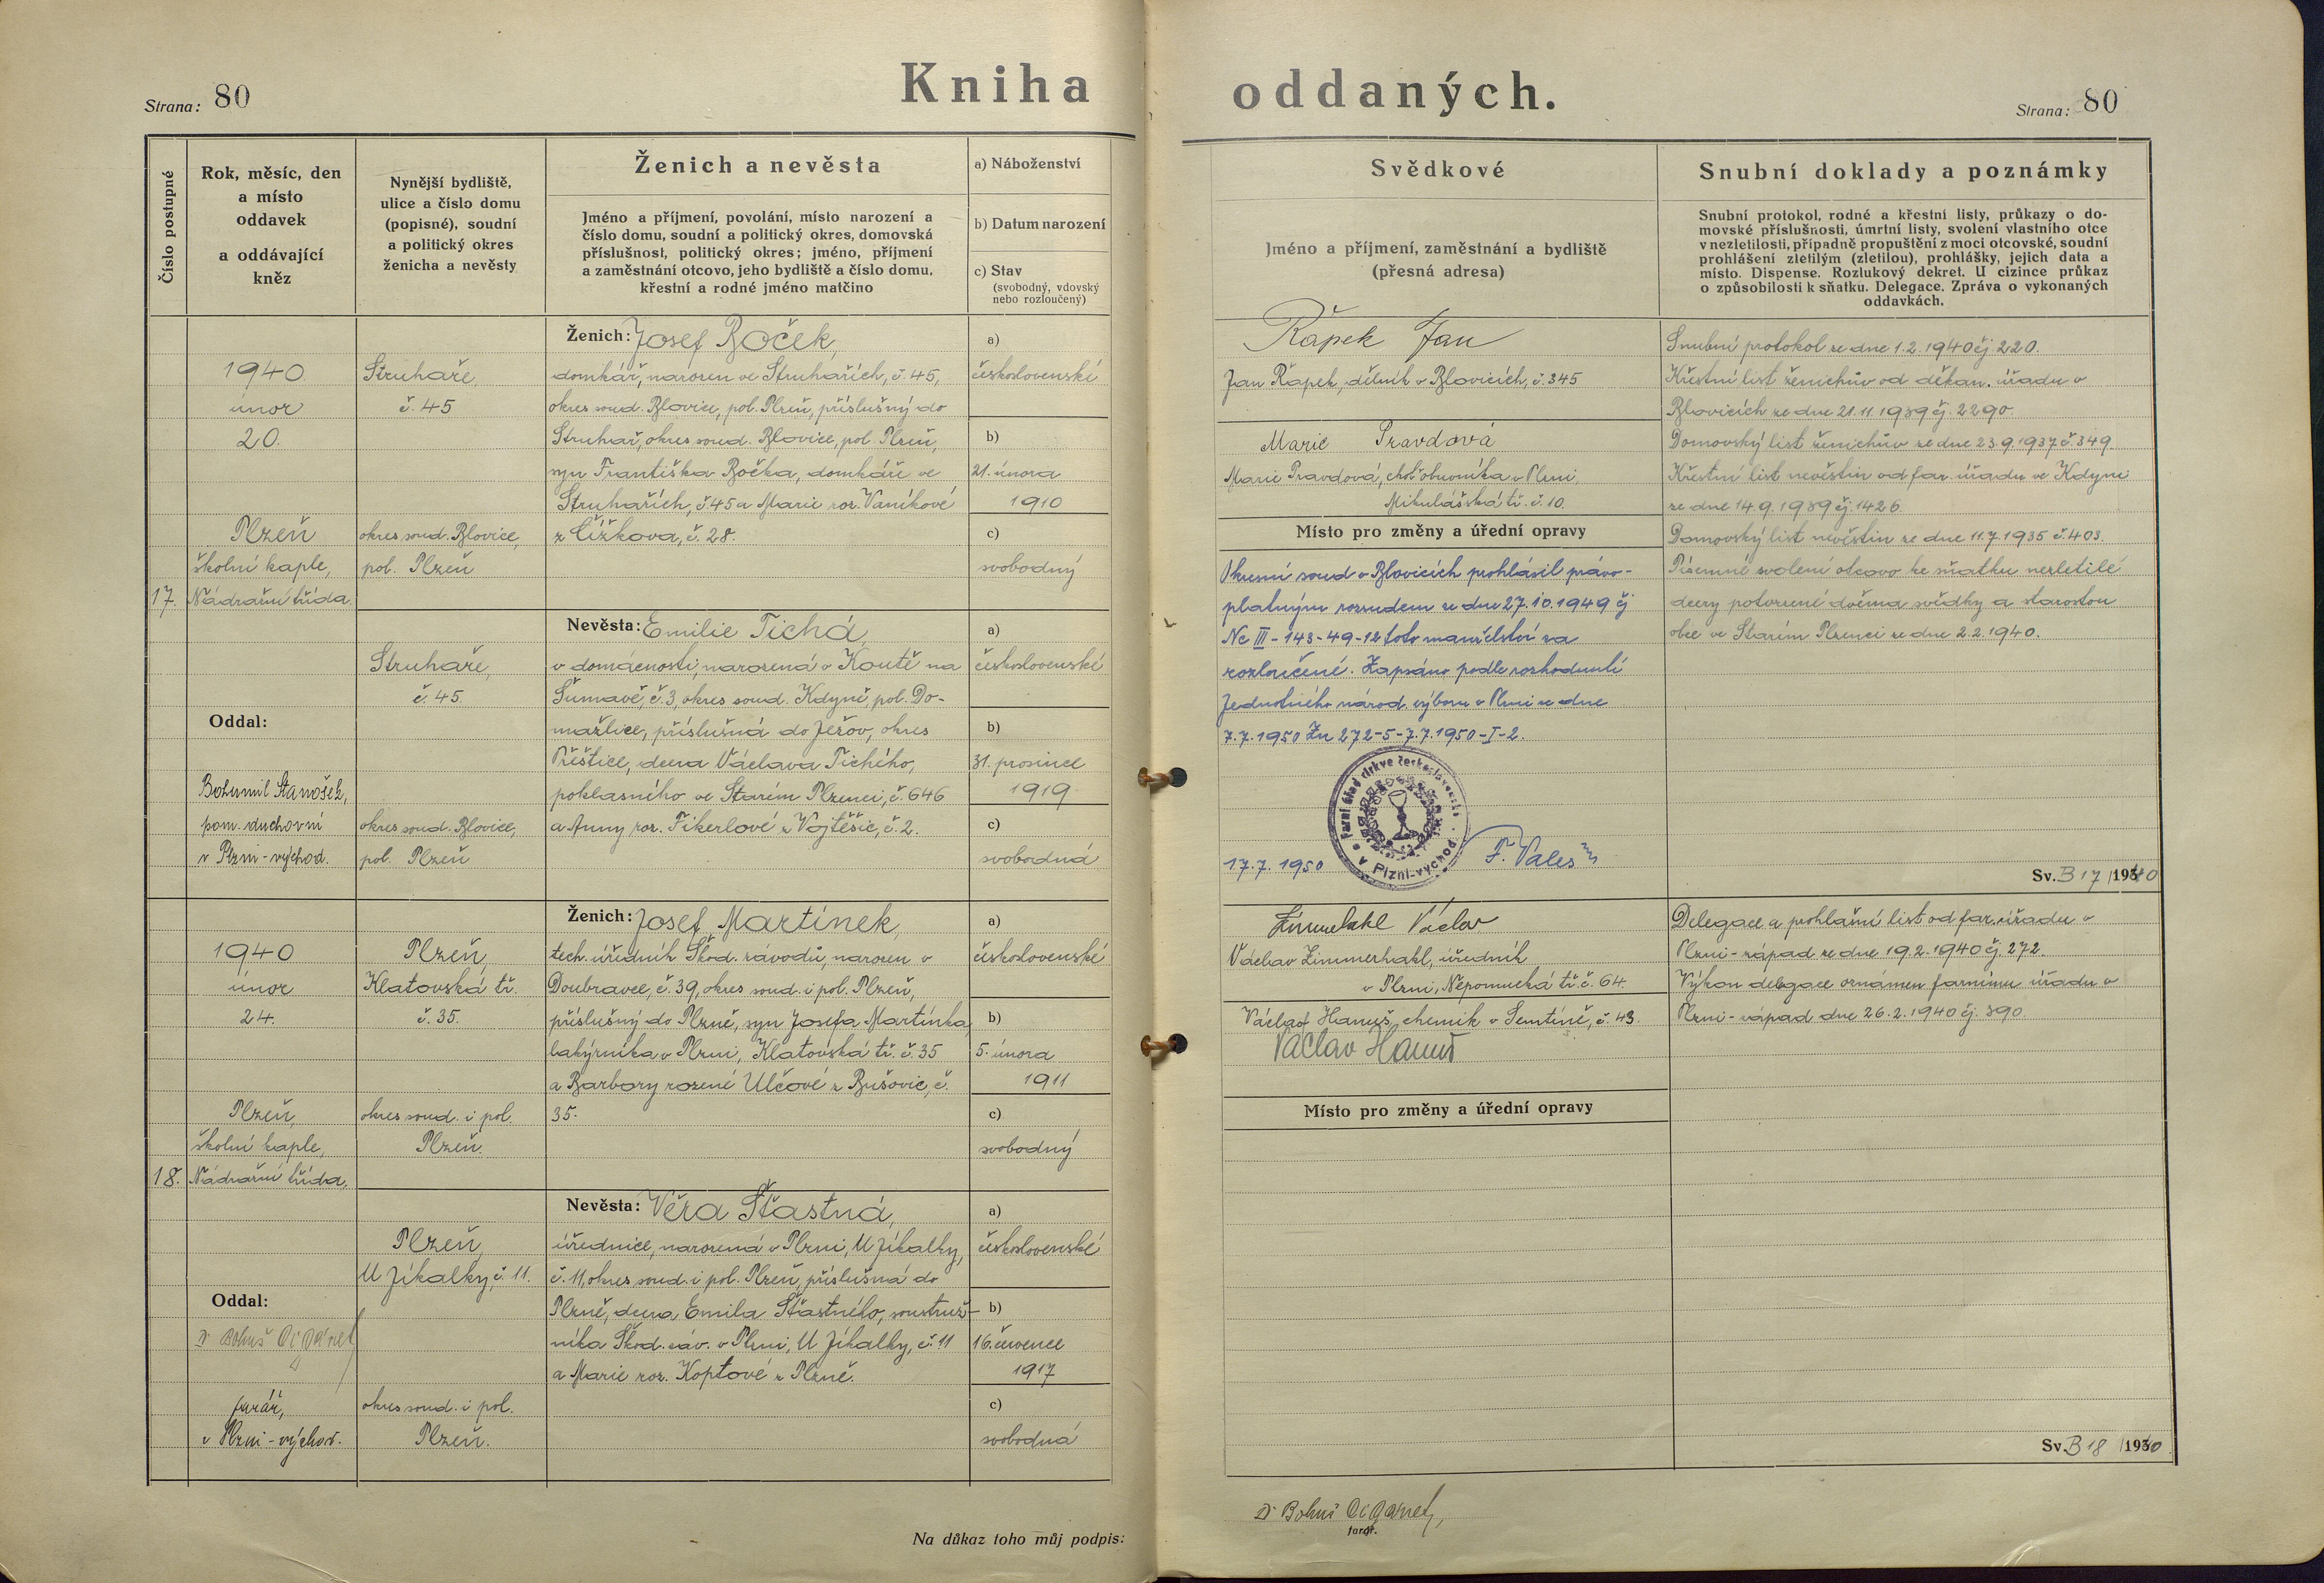 Strana: 80
Kniha oddaných.
Strana: 80
Číslo postupné
Rok, měsíc, den
a místo
oddavek
a oddávající
kněz
Nynější bydliště,
ulice a číslo domu
(popisné), soudní
a politický okres
ženicha a nevěsty
Ženich a nevěsta
Jméno a příjmení, povolání, místo narození a
číslo domu, soudní a politický okres, domovská
příslušnost, politický okres; jméno, příjmení
a zaměstnání otcovo, jeho bydliště a číslo domu,
křestní a rodné jméno matčino
a) Náboženství
b) Datum narození
c) Stav
(svobodný, vdovský
nebo rozloučený)
Svědkové
Jméno a příjmení, zaměstnání a bydliště
(přesná adresa)
Snubní doklady a poznámky
Snubní protokol, rodné a křestní listy, průkazy o do-
movské příslušnosti, úmrtní listy, svolení vlastního otce
v nezletilosti, případně propuštění z moci otcovské, soudní
prohlášení zletilým (zletilou), prohlášky, jejich data a
místo. Dispense. Rozlukový dekret. U cizince průkaz
o způsobilosti k sňatku. Delegace. Zpráva o vykonaných
oddavkách.
17.
1940
únor
20.
Plzeň
školní kaple,
Nádražní třída.
Oddal:
Bohumil Stanošek,
pom. duchovní
v Plzni-východ.
Struhaře,
č. 45
okres soud. Blovice,
pol. Plzeň
Ženich: Josef Boček,
domkář, narozen ve Struhařích, č. 45,
okres soud. Blovice, pol. Plzeň, příslušný do
Struhař, okres soud. Blovice, pol. Plzeň,
syn Františka Bočka, domkáře ve
Struhařích, č. 45 a Marie roz. Vaníkové
z Čížkova, č. 28.
a)
československé
b)
21. února
1910
c)
svobodný
Struhaře,
č. 45.
okres soud. Blovice,
pol. Plzeň
Nevěsta: Emilie Tichá,
v domácnosti, narozená v Koutě na
Šumavě, č. 3, okres soud. Kdyně pol. Do-
mažlice, příslušná do Ježov, okres
Přeštice, dcera Václava Tichého,
poklasného ve Starém Plzenci, č. 646
a Anny roz. Fikerlové z Vojtěšic, č. 2.
a)
československé
b)
31. prosince
1919
c)
svobodná
Řápek Jan
Jan Řápek, dělník v Blovicích, č. 345
Marie Pravdová
Marie Pravdová, choť obuvníka v Plzni
Mikulášská tř. č. 10.
Místo pro změny a úřední opravy
Okresní soud v Blovicích prohlásil právo-
platným rozsudem ze dne 27.10.1949 čj
Nc III-143-49-12 toto manželství za
rozloučené. Zapsáno podle rozhodnutí
Jednotného národ. výboru v Plzni ze dne
7.7.1950 Zn 272-5-7.7.1950-I-2.
Farní úřad církve československé
v Plzni-východ
17.7. 1950
F. Valeš
Snubní protokol ze dne 1.2.1940 čj. 220.
Křestní list ženichův od děkan. úřadu v
Blovicích ze dne 21.11.1939 čj. 2290.
Domovský list ženichův ze dne 23.9.1937 č. 349.
Křestní list nevěstin od far. úřadu ve Kdyni
ze dne 14.9.1939 čj. 1426.
Domovský list nevěstin ze dne 11.7.1935 č. 403.
Písemné svolení otcovo ke sňatku nezletilé
dcery potvrzené dvěma svědky a starostou
obce ve Starém Plzenci ze dne 2.2.1940.
Sv. B 17/1940
18.
1940
únor
24.
Plzeň,
školní kaple,
Nádražní třída.
Oddal:
Dr Bohuš
farář,
v Plzni-východ.
Plzeň,
Klatovská tř.
č. 35.
okres soud. i pol.
Plzeň.
Ženich: Josef Martínek,
tech. úředník Škod. závodů, narozen v
Doubravce, č. 39, okres soud. i pol. Plzeň,
příslušný do Plzně, syn Josefa Martínka
lakýrníka v Plzni, Klatovská tř. č. 35
a Barbory rozené Ulčové z Bušovic, č.
35.
a)
československé
b)
5. února
1911
c)
svobodný
Plzeň,
U Jíkalky, č. 11.
okres soud. i pol.
Plzeň.
Nevěsta: Věra Šťastná,
úřednice, narozená v Plzni, U Jíkalky,
č. 11, okres soud. i pol. Plzeň, příslušná do
Plzně, dcera Emila Šťastného, soustruž-
níka Škod. záv. v Plzni, U Jíkalky, č. 11
a Marie roz. Koptové z Plzně.
a)
československé
b)
16. července
1917
c)
svobodná
Zimmerhakl Václav
Václav Zimmerhakl, úředník
v Plzni, Nepomucká tř. č. 64.
Václav Hanuš, chemik v Semtíně, č. 43.
Václav Hanuš
Místo pro změny a úřední opravy
Delegace a prohlašní list od far. úřadu v
Plzni-západ ze dne 19.2.1940 čj. 272.
Výkon delegace oznámen farnímu úřadu v
Plzni-západ dne 26.2.1940 čj. 390.
Sv. B 18/1940
Na důkaz toho můj podpis:
Dr Bohuš
farář.